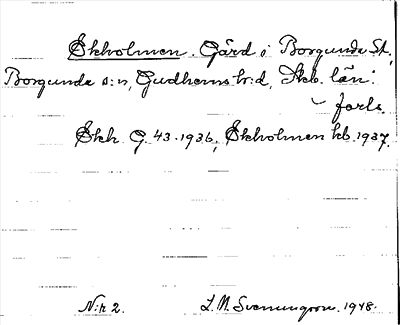 Ekholmen. Gård i Borgunda St.,
Borgunda s:n, Gudhems hr:d, Skb. län.
forts.
Ekh. G. 43. 1936, Ekholmen hb. 1937.
N:r 2. L. M. Svenungsson. 1948.